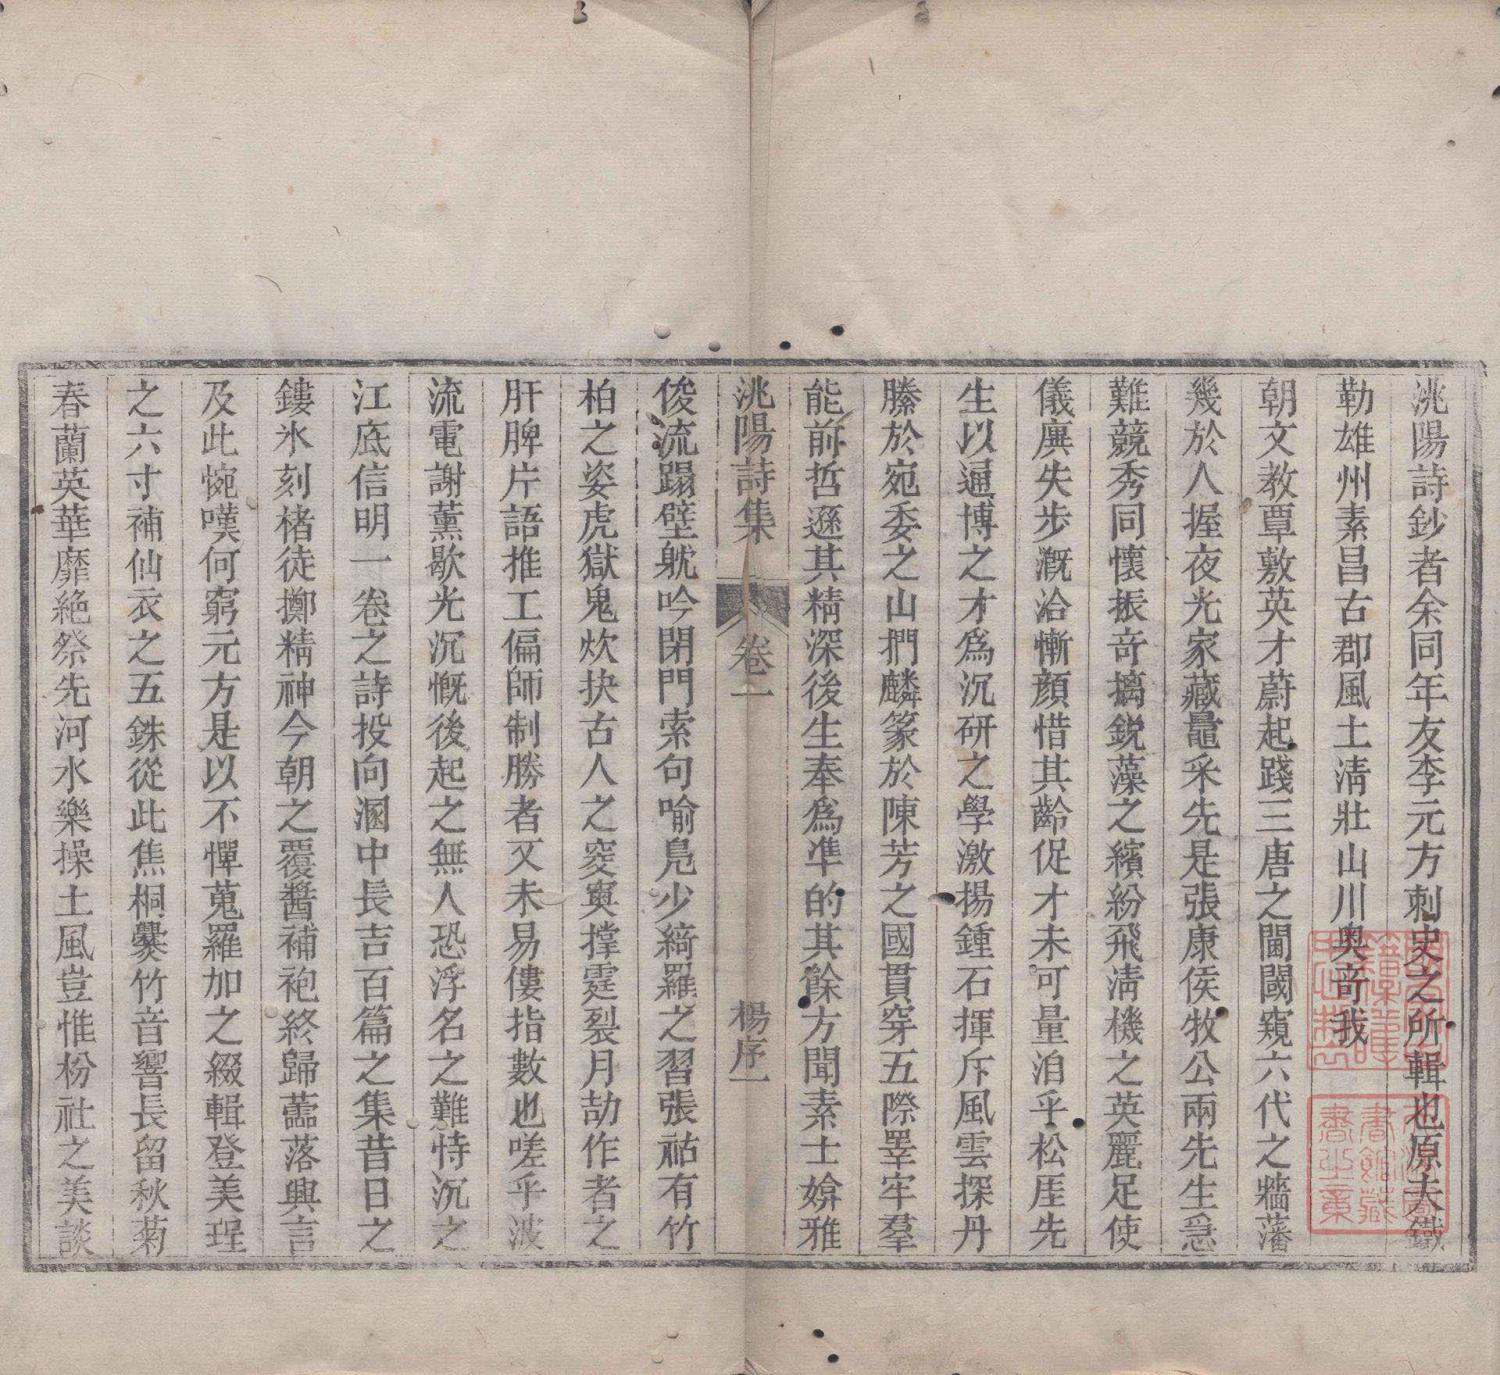 洮陽詩鈔者余同年友李元方刺史之所輯也原夫鐵
勒雄州素昌古郡風土淸壯山川奥竒我
朝文教覃敷英才蔚起踐三唐之閫閾窺六代之牆藩
幾於人握夜光家藏鼂采先是張康侯牧公兩先生急
難競秀同懷振竒摛鋭藻之繽紛飛淸機之英麗足使
儀廙失步溉洽慚顏惜其齡促才未可量洎乎松厓先
生以逼博之才爲沉研之學激揚鍾石揮斥風雲探丹
縢於宛委之山捫麟篆於陳芳之國貫穿五際睪牢羣
能前哲遜其精深後生奉爲凖的其餘方聞素士媕雅
洮陽詩集 卷一 楊序一
俊流蹋壁躭吟閉門索句喻鳧少綺羅之習張祜有竹
柏之姿虎獄鬼炊抉古人之窔奥撑霆裂月劼作者之
肝脾片語推工偏師制勝者又未易僂指數也嗟乎波
流電謝薰歇光沉慨後起之無人恐浮名之難恃沉之
江底信明一卷之詩投向溷中長吉百篇之集昔日之
鏤氷刻楮徒擲精神今朝之覆醬補袍終歸蘦落興言
及此惋嘆何窮元方是以不憚蒐羅加之綴輯登美珵
之六寸補仙衣之五銖從此焦桐爨竹音響長留秋菊
春蘭英華靡絶祭先河水樂操土風豈惟枌社之美談